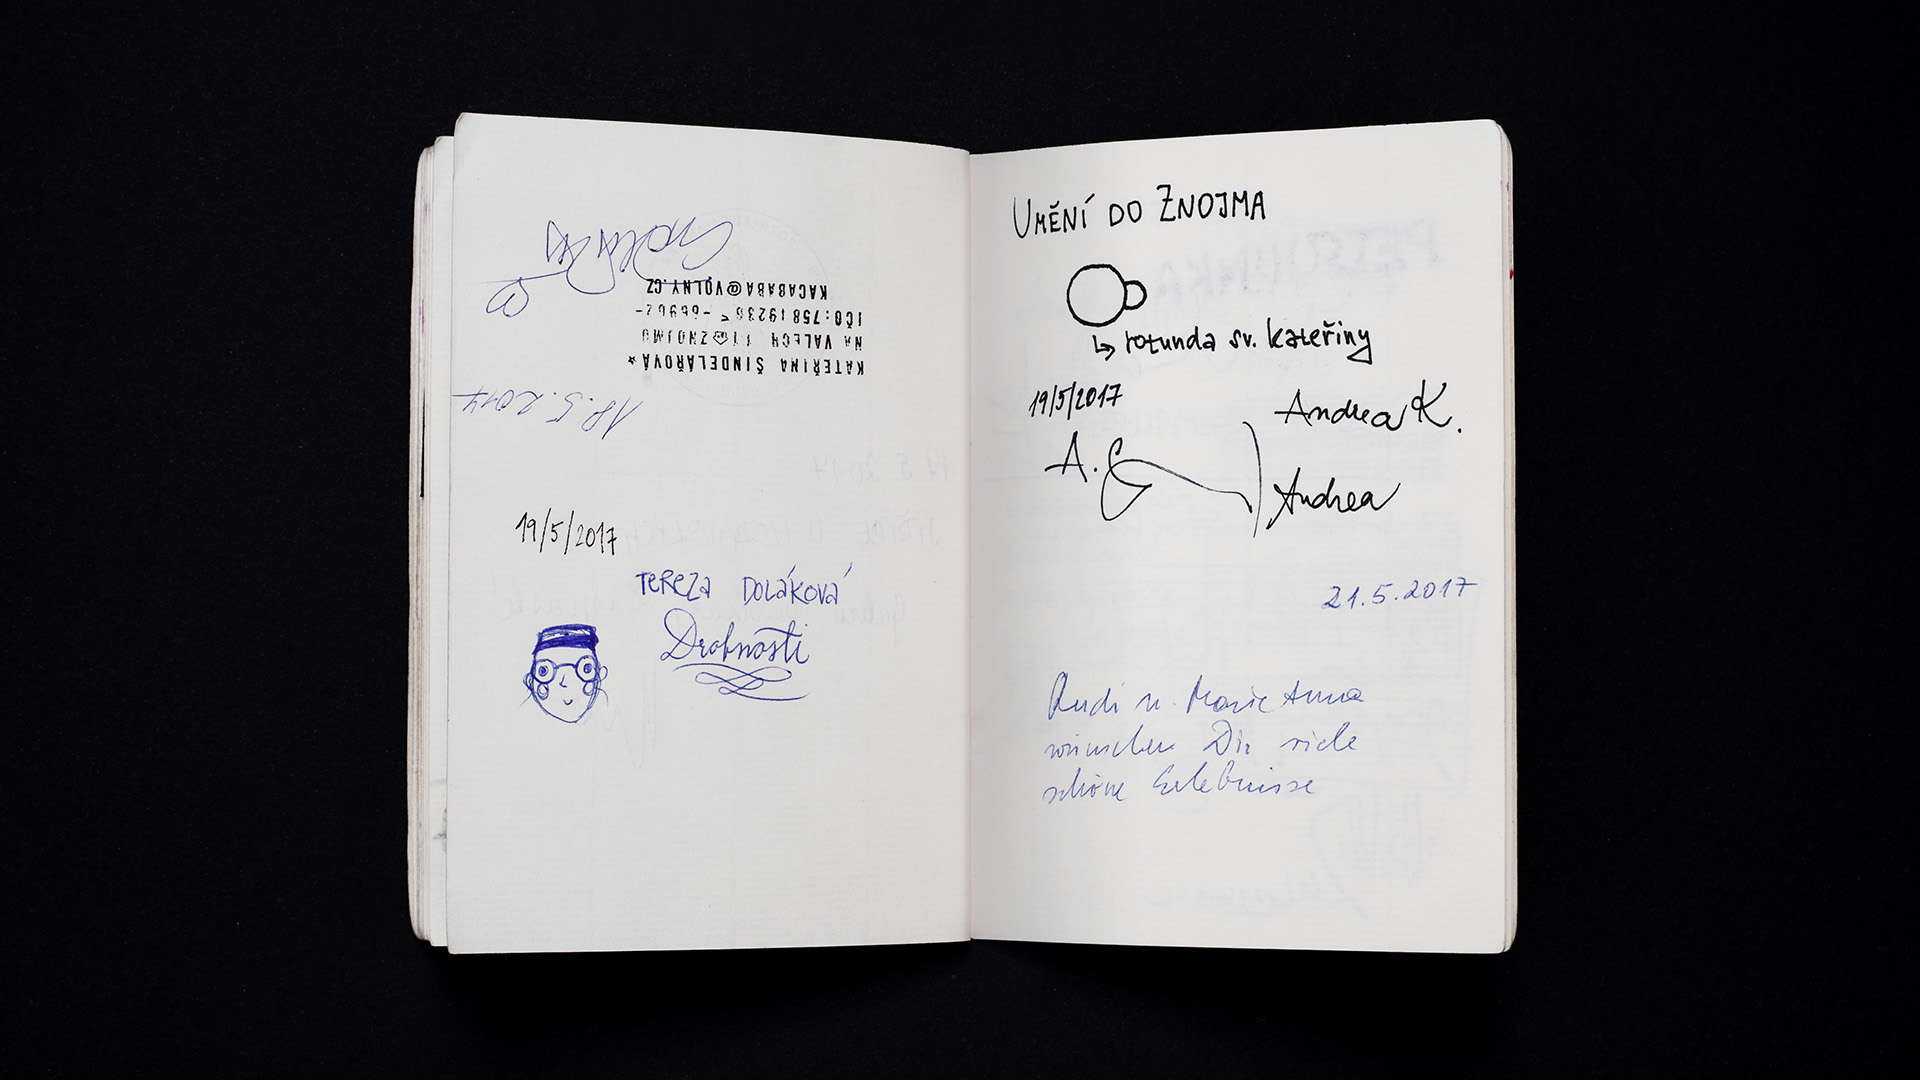 KATEŘINA ŠINDELÁŘOVÁ★
NA VALECH ZNOJMO
IČO:
KACABABA@VOLNY.CZ
18.5.2017
19/5/2017
TEREZA DOLÁKOVÁ
Drobnosti
UMĚNÍ DO ZNOJMA
↳ rotunda sv. kateřiny
19/5/2017
Andrea K.
A. G
Andrea
21.5.2017
Rudi u. Marie Anna
wünschen Dir viele
schöne Erlebnisse